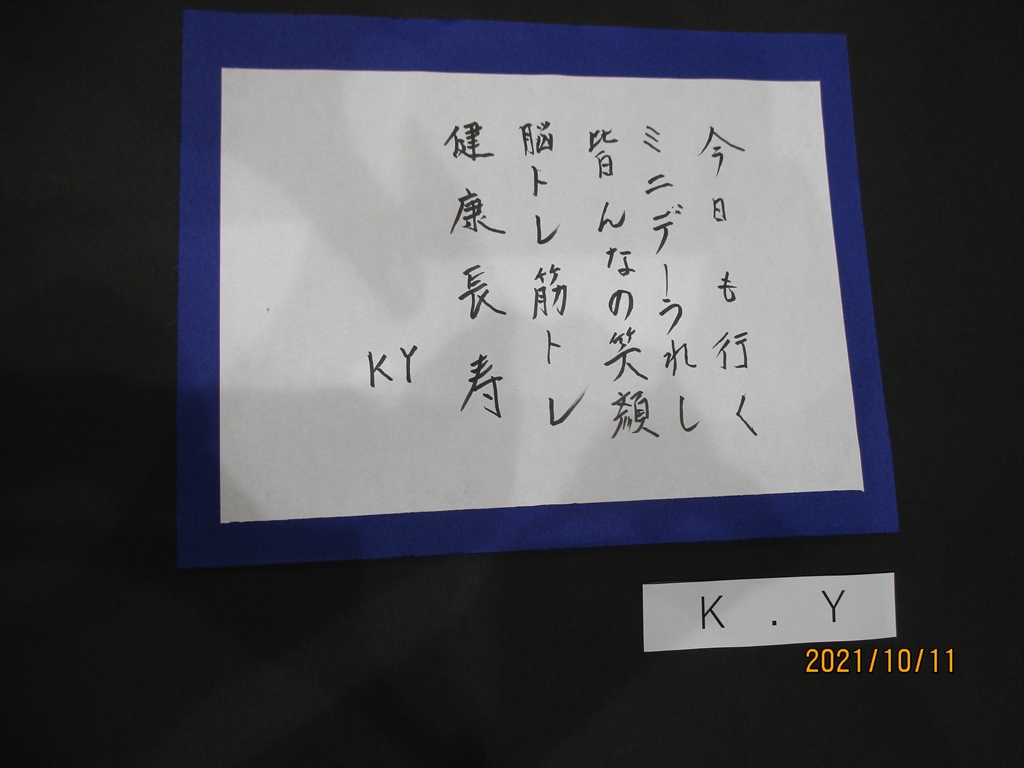 今日も行く
ミニデーうれし
皆んなの笑顔
脳トレ筋トレ
健康長寿
KY
K．Y
2021/10/11